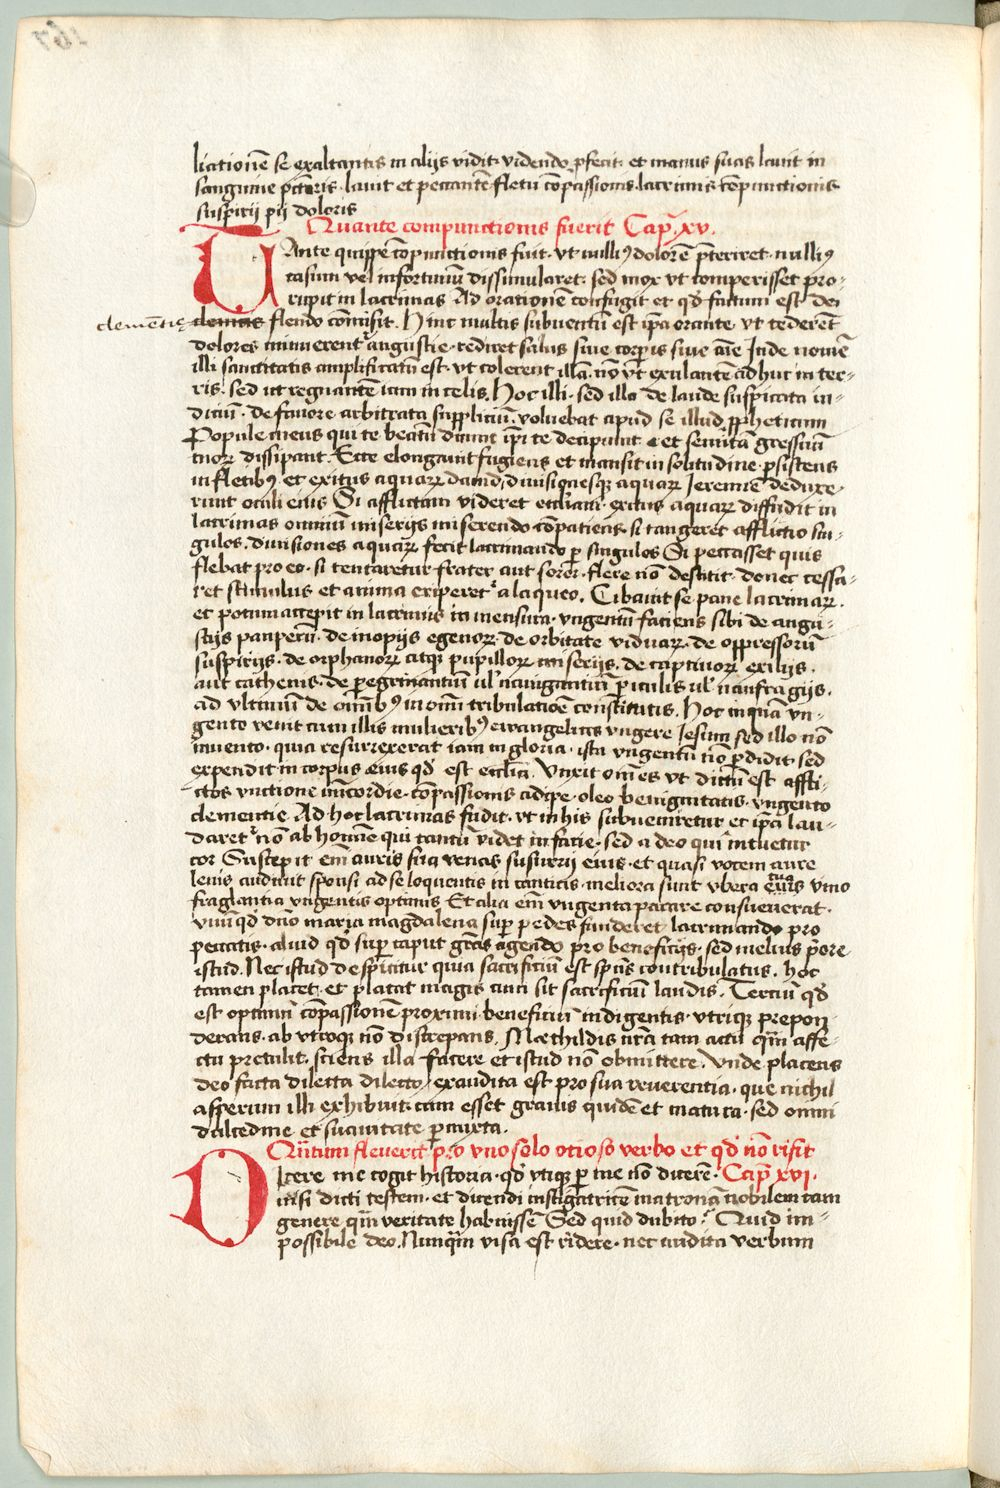 liationē se exaltantis in alijs vidit. videndo ꝓfecit. et manus suas lauit in
sanguine pctōris. lauit et peccantē fletu cōpassionis. lacrimis cōpunctionis
suspirij pij doloris
Quante compunctionis fuerit Cap. xv.
TAnte quippe cōpunctionis fuit. vt nulliꝰ dolorē p̄teriret. nulliꝰ
casum vel infortuniū dissimularet. sed mox vt comperisset pro-
rupit in lacrimas Ad orationē confugit et qd' factum est dei
clemētię flendo cōmisit. Hinc multis subuentū est ip̄a orante vt cederēt
dolores minuerent' angustie. rediret salus siue corꝑis siue aīe Inde nomē
illi sanctitatis amplificatū est. vt colerent illā. nō vt exulantē adhuc in ter-
ris. sed ut regnantē iam in celis. Hoc illi. sed illa de laude suspicata in-
diciū. de fauore arbitrata suppliciū. voluebat apud se illud ꝓpheticum
Popule meus qui te beatū dicunt ip̄i te decipiunt et semitā gressuū
tuoꝝ dissipant. Ecce elongauit fugiens et mansit in solitudine. ꝑsistens
in fletibꝰ. et exitus aquaꝝ dauid, diuisionesqꝫ aquaꝝ Ieremie deduxe-
runt oculi eius Si afflictam videret eccl'iam. exitus aquaꝝ diffudit in
lacrimas omniū miserijs miserendo cōpatiens. si tangeret afflictio sin-
gulos. diuisiones aquaꝝ fecit lacrimando ꝑ singulos Si peccasset quis
flebat pro eo. si tentaretur frater aut soror. flere nō destitit. donec cessa-
ret stimulus et anima eriperet' a laqueo. Cibauit se pane lacrimaꝝ.
et potum accepit in lacrimis in mensura. vngentū faciens sibi de angu-
stijs pauperū. de inopijs egenoꝝ. de orbitate viduaꝝ. de oppressorū
suspirijs. de orphanoꝝ atqꝫ pupilloꝝ miserijs. de captiuoꝝ exilijs.
aut cathenis. de ꝑegrinantium ul' nauigantiū ꝑiculis ul' naufragijs.
ad vltimū de omībꝰ in omī tribulatiōe constitutis. Hoc inquā vn-
gento venit cum illis mulieribꝰ ewangelicis vngere Iesum sed illo nō
inuento. quia resurrexerat iam in gloria. ista vngentū nō ꝑdidit. sed
expendit in corpus eius qd' est eccl'ia. Vnxit om̄es vt dictū est affli-
ctos vnctione mīcordie. cōpassionis adipe. oleo benignitatis. vngento
clementie. Ad hoc lacrimas fudit. vt in his subueniretur et ip̄a lau-
daret' nō ab homīe qui tantū videt in facie. sed a deo qui intuetur
cor Suscepit em̄ auris sua venas susurrij eius. et quasi vocem aure
lenis audiuit sponsi ad se loquentis in canticis. meliora sunt vbera tua vino
fraglantia vngentis optimis Et alia em̄ vngenta parare consueuerat.
vnū qd' cum maria magdalena suꝑ pedes funderet lacrimando pro
peccatis. aliud qd' suꝑ caput grās agendo pro beneficijs. sed melius p̄ore
istud. Nec istud despicitur quia sacrificiū est sp̄us contribulatus. hoc
tamen placet. et placat magis cum sit sacrificiū laudis. Terciū qd'
est optimū cōpassionē proximi. beneficiū indigentis. vtriqꝫ prepon
derans. ab vtroqꝫ nō discrepans. Mæthildis nrā tam actu qm̄ affe-
ctu pretulit. sciens illa facere et istud nō obmittere. Vnde placens
deo facta dilecta dilecto, exaudita est pro sua reuerentia. que nichil
asperum illi exhibuit. cum esset grauis quidē et matura. sed omni
dulcedine et suauitate ꝑmixta.
Qm̄tum fleuerit pro vno solo otioso verbo et qd' nō risit
DIcere me cogit historia. qd' vtiqꝫ ꝑ me nō dicerē. Cap. xvi.
nisi dicti testem. et dicendi instigatricē matronā nobilem tam
genere qm̄ veritate habuissē Sed quid dubito? Quid im-
possibile deo. Nunqm̄ visa est ridere. nec audita verbum